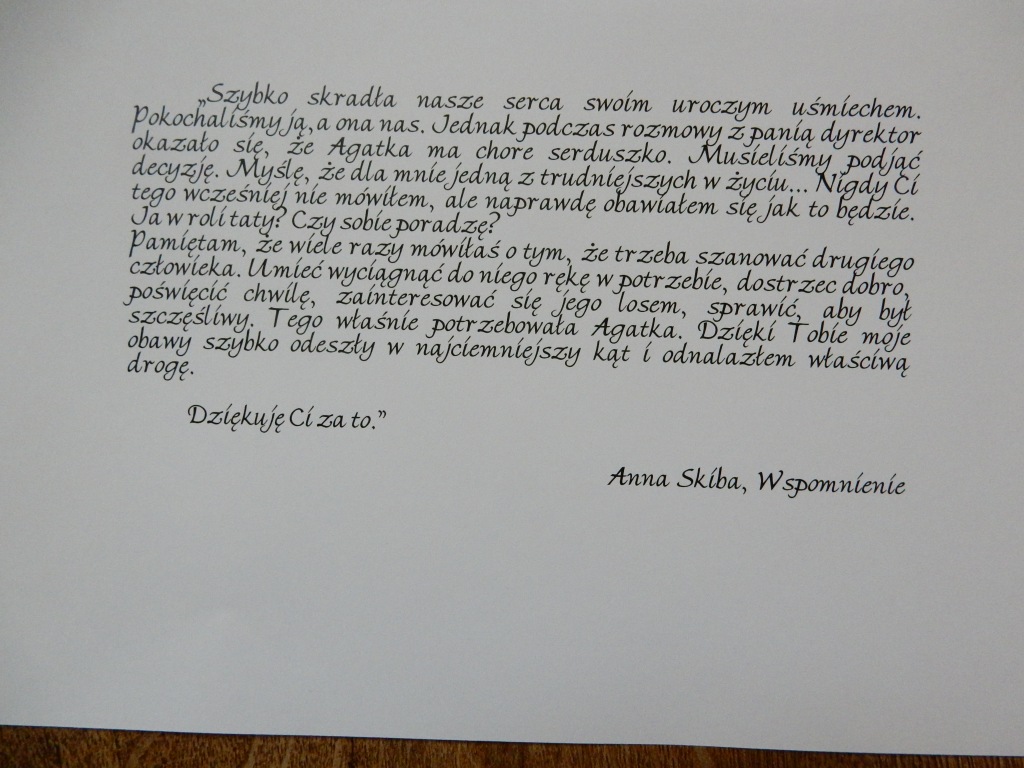 „Szybko skradła nasze serca swoim uroczym uśmiechem.
Pokochaliśmy ją, a ona nas. Jednak podczas rozmowy z panią dyrektor
okazało się, że Agatka ma chore serduszko. Musieliśmy podjąć
decyzję. Myślę, że dla mnie jedną z trudniejszych w życiu... Nigdy Ci
tego wcześniej nie mówiłem, ale naprawdę obawiałem się jak to będzie.
Ja w roli taty? Czy sobie poradzę?
Pamiętam, że wiele razy mówiłaś o tym, że trzeba szanować drugiego
człowieka. Umieć wyciągnąć do niego rękę w potrzebie, dostrzec dobro,
poświęcić chwilę, zainteresować się jego losem, sprawić, aby był
szczęśliwy. Tego właśnie potrzebowała Agatka. Dzięki Tobie moje
obawy szybko odeszły w najciemniejszy kąt i odnalazłem właściwą
drogę.
Dziękuję Ci za to.”
Anna Skiba, Wspomnienie